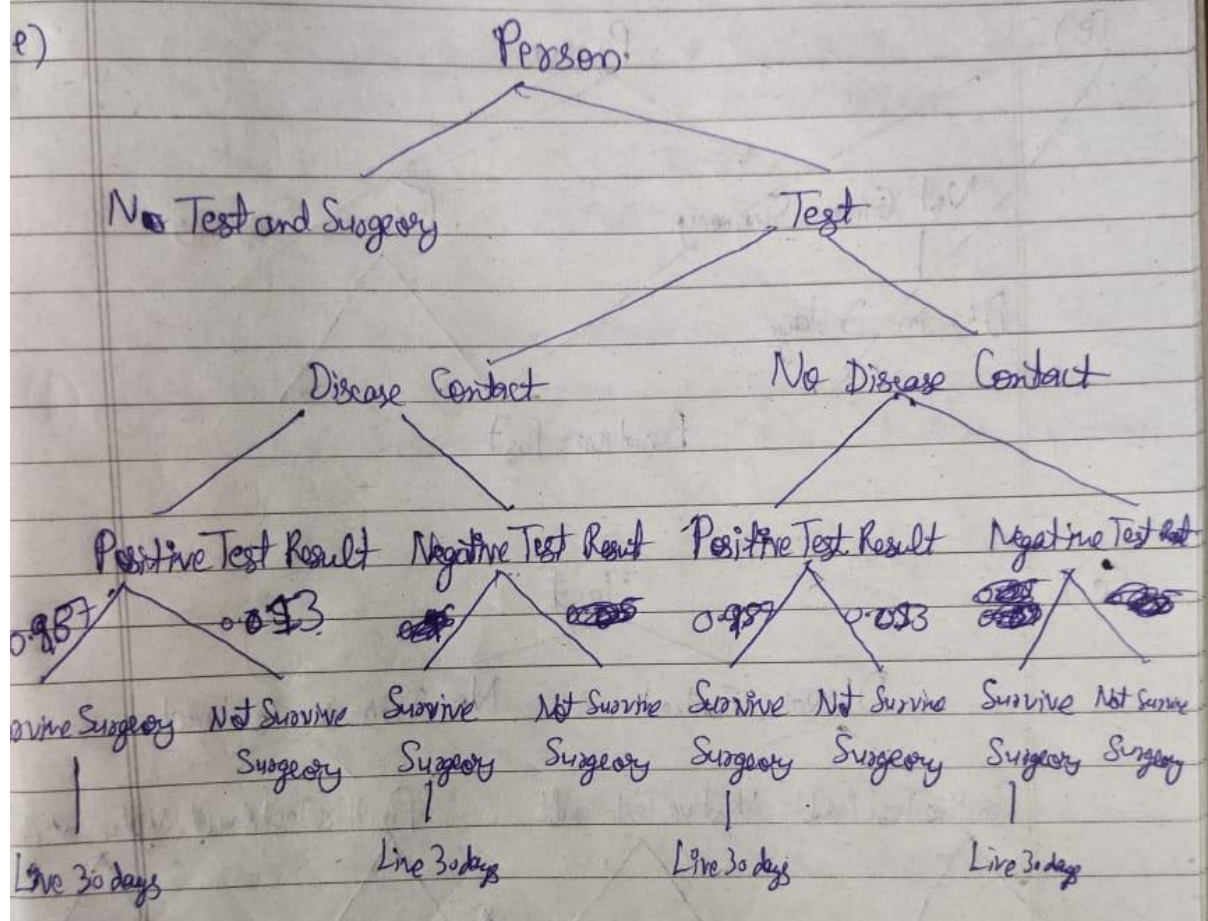 e)
Person.
No Test and Surgeory
Test
Disease Contact
No Disease Contact
Positive Test Result
Negative Test Result
Positive Test Result
Negative Test
0.987
0.013
0.987
0.013
Surgeory
Not Survive
Surgeory
Survive
Surgeory
Not Survive
Surgeory
Survive
Surgeory
Not Survive
Surgeory
Survive
Surgeory
Not Survive
Surgeory
Live 30 days
Live 30 days
Live 30 days
Live 30 days